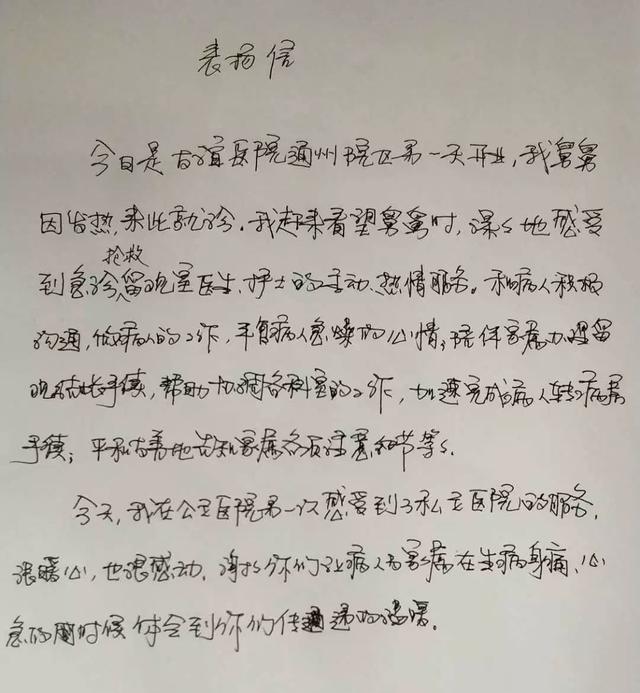 表扬信
今日是友谊医院通州院区第一天开业,我舅舅
因发热,来此就诊.我赶来看望舅舅时,深深地感受
抢救
到急诊、留观室医生、护士的主动、热情服务。和病人积极
沟通,做病人的工作,平复病人急燥的心情;陪伴家属办理留
观结账手续,帮助协调各科室的工作,加速完成病人转病房
手续;平和友善地告知家属各项注意和节等等.
今天,我在公立医院第一次感受到了私立医院的服务,
很暖心,也很感动.谢谢你们让病人和家属在生病身痛、心
急的时候体会到你们传递的温暖.